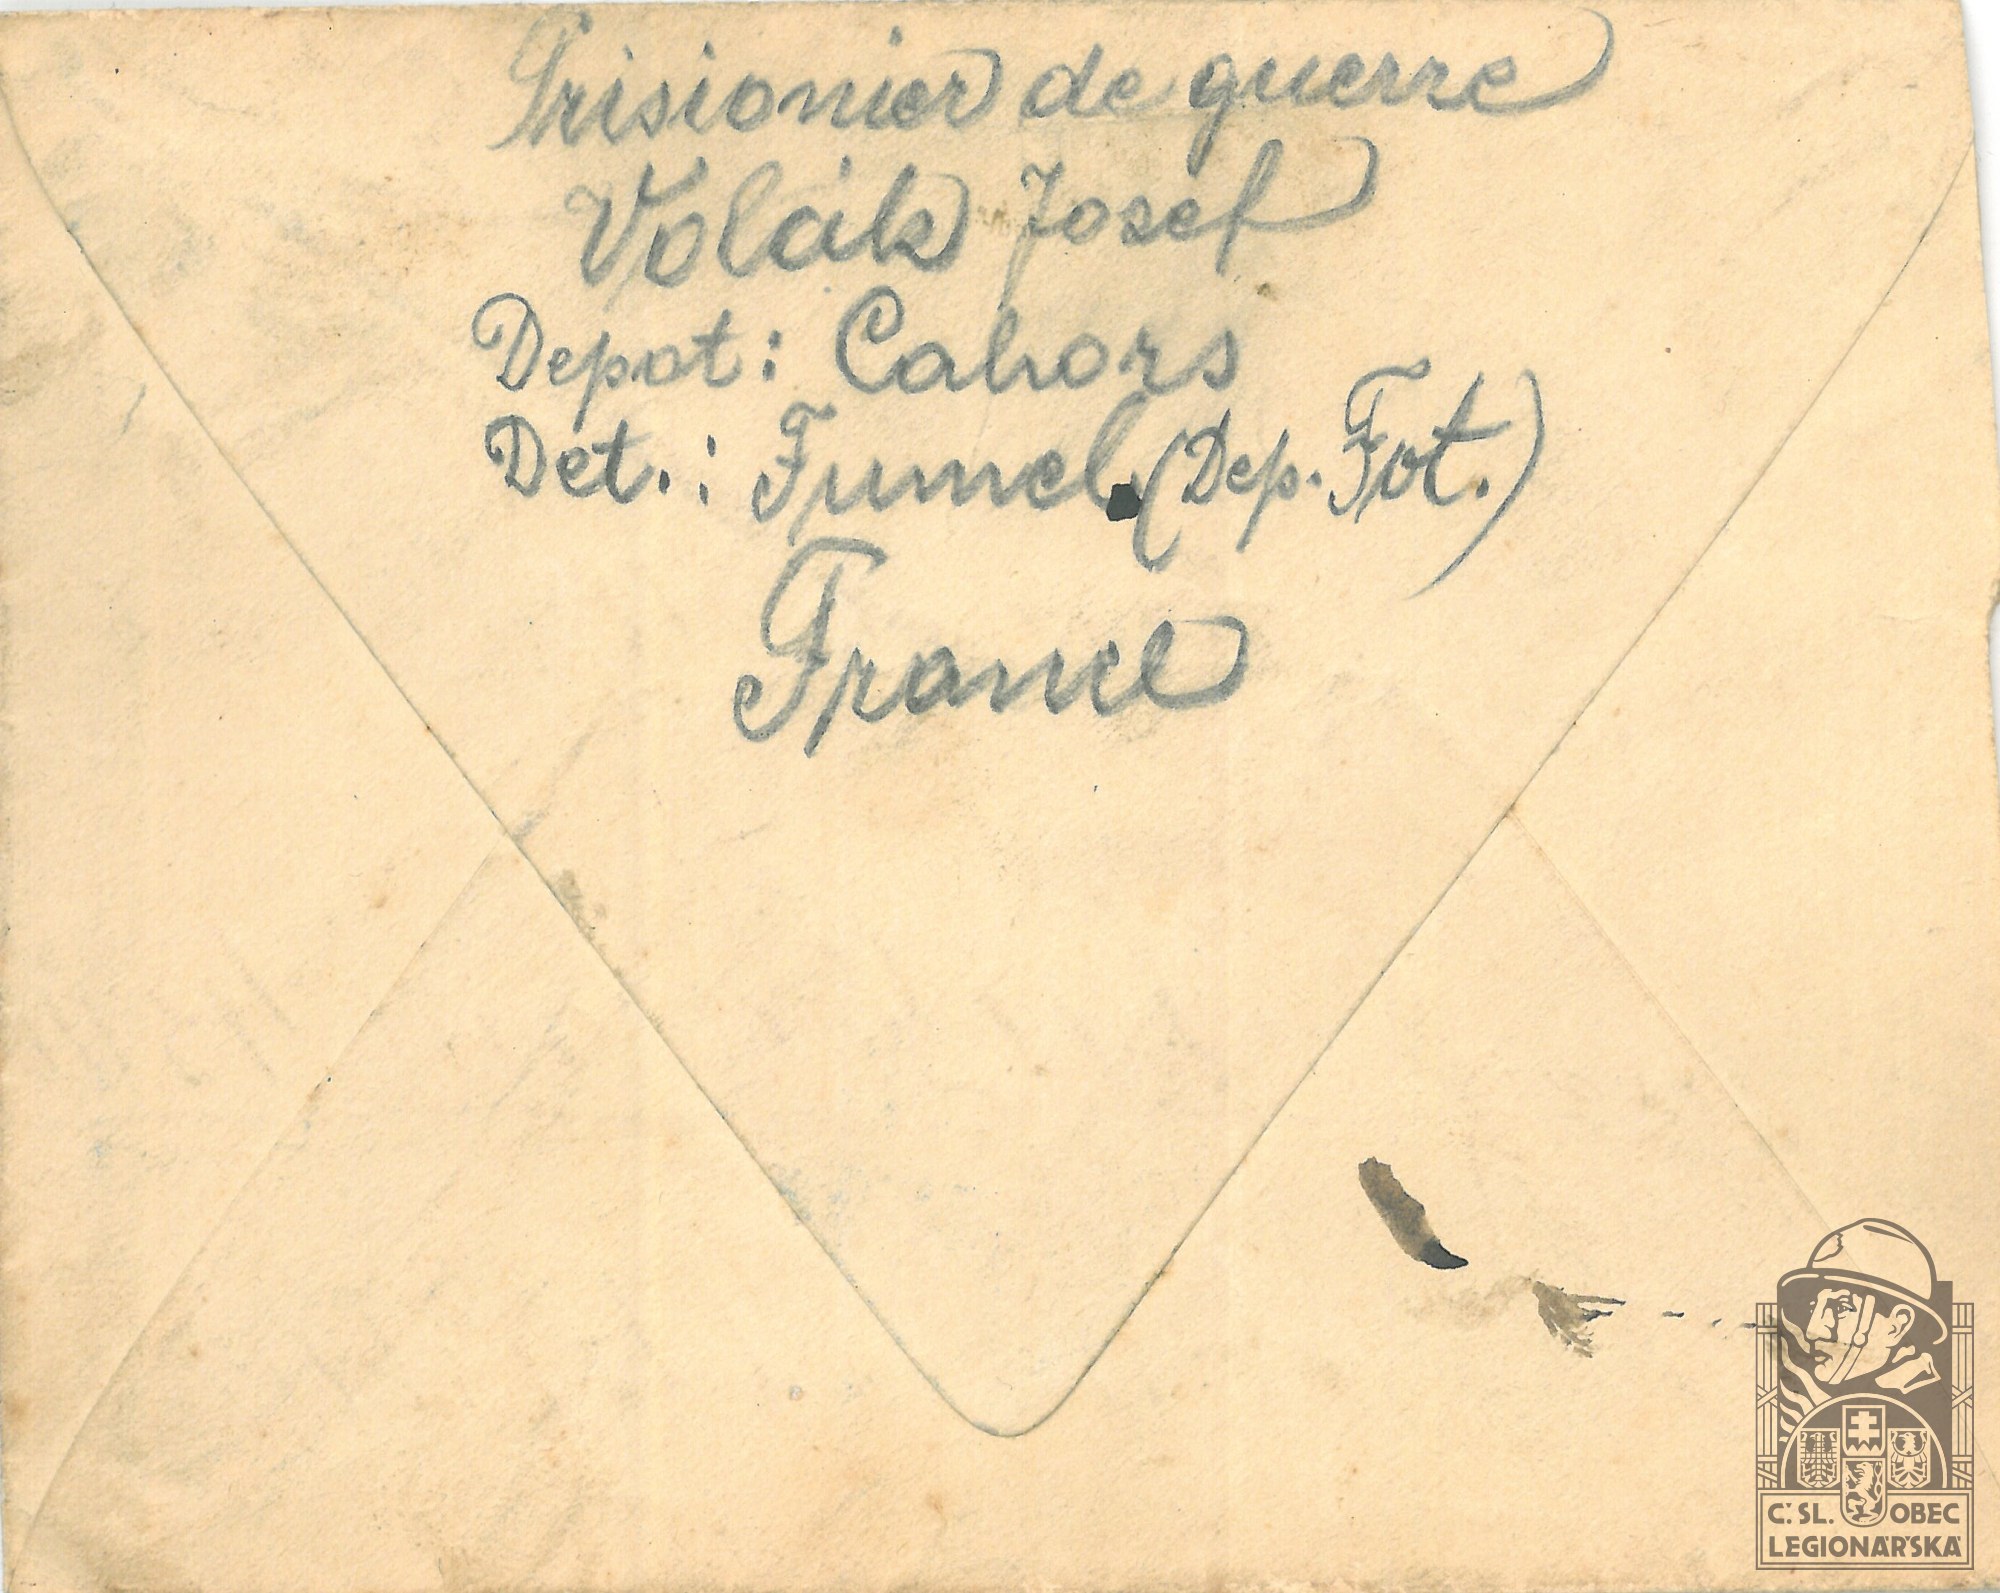 Prisionier de guerre
Volák Josef
Depot: Cahors
Det.: Fumel (Dep. Fot.)
France
Č. SL. OBEC
LEGIONÁŘSKÁ